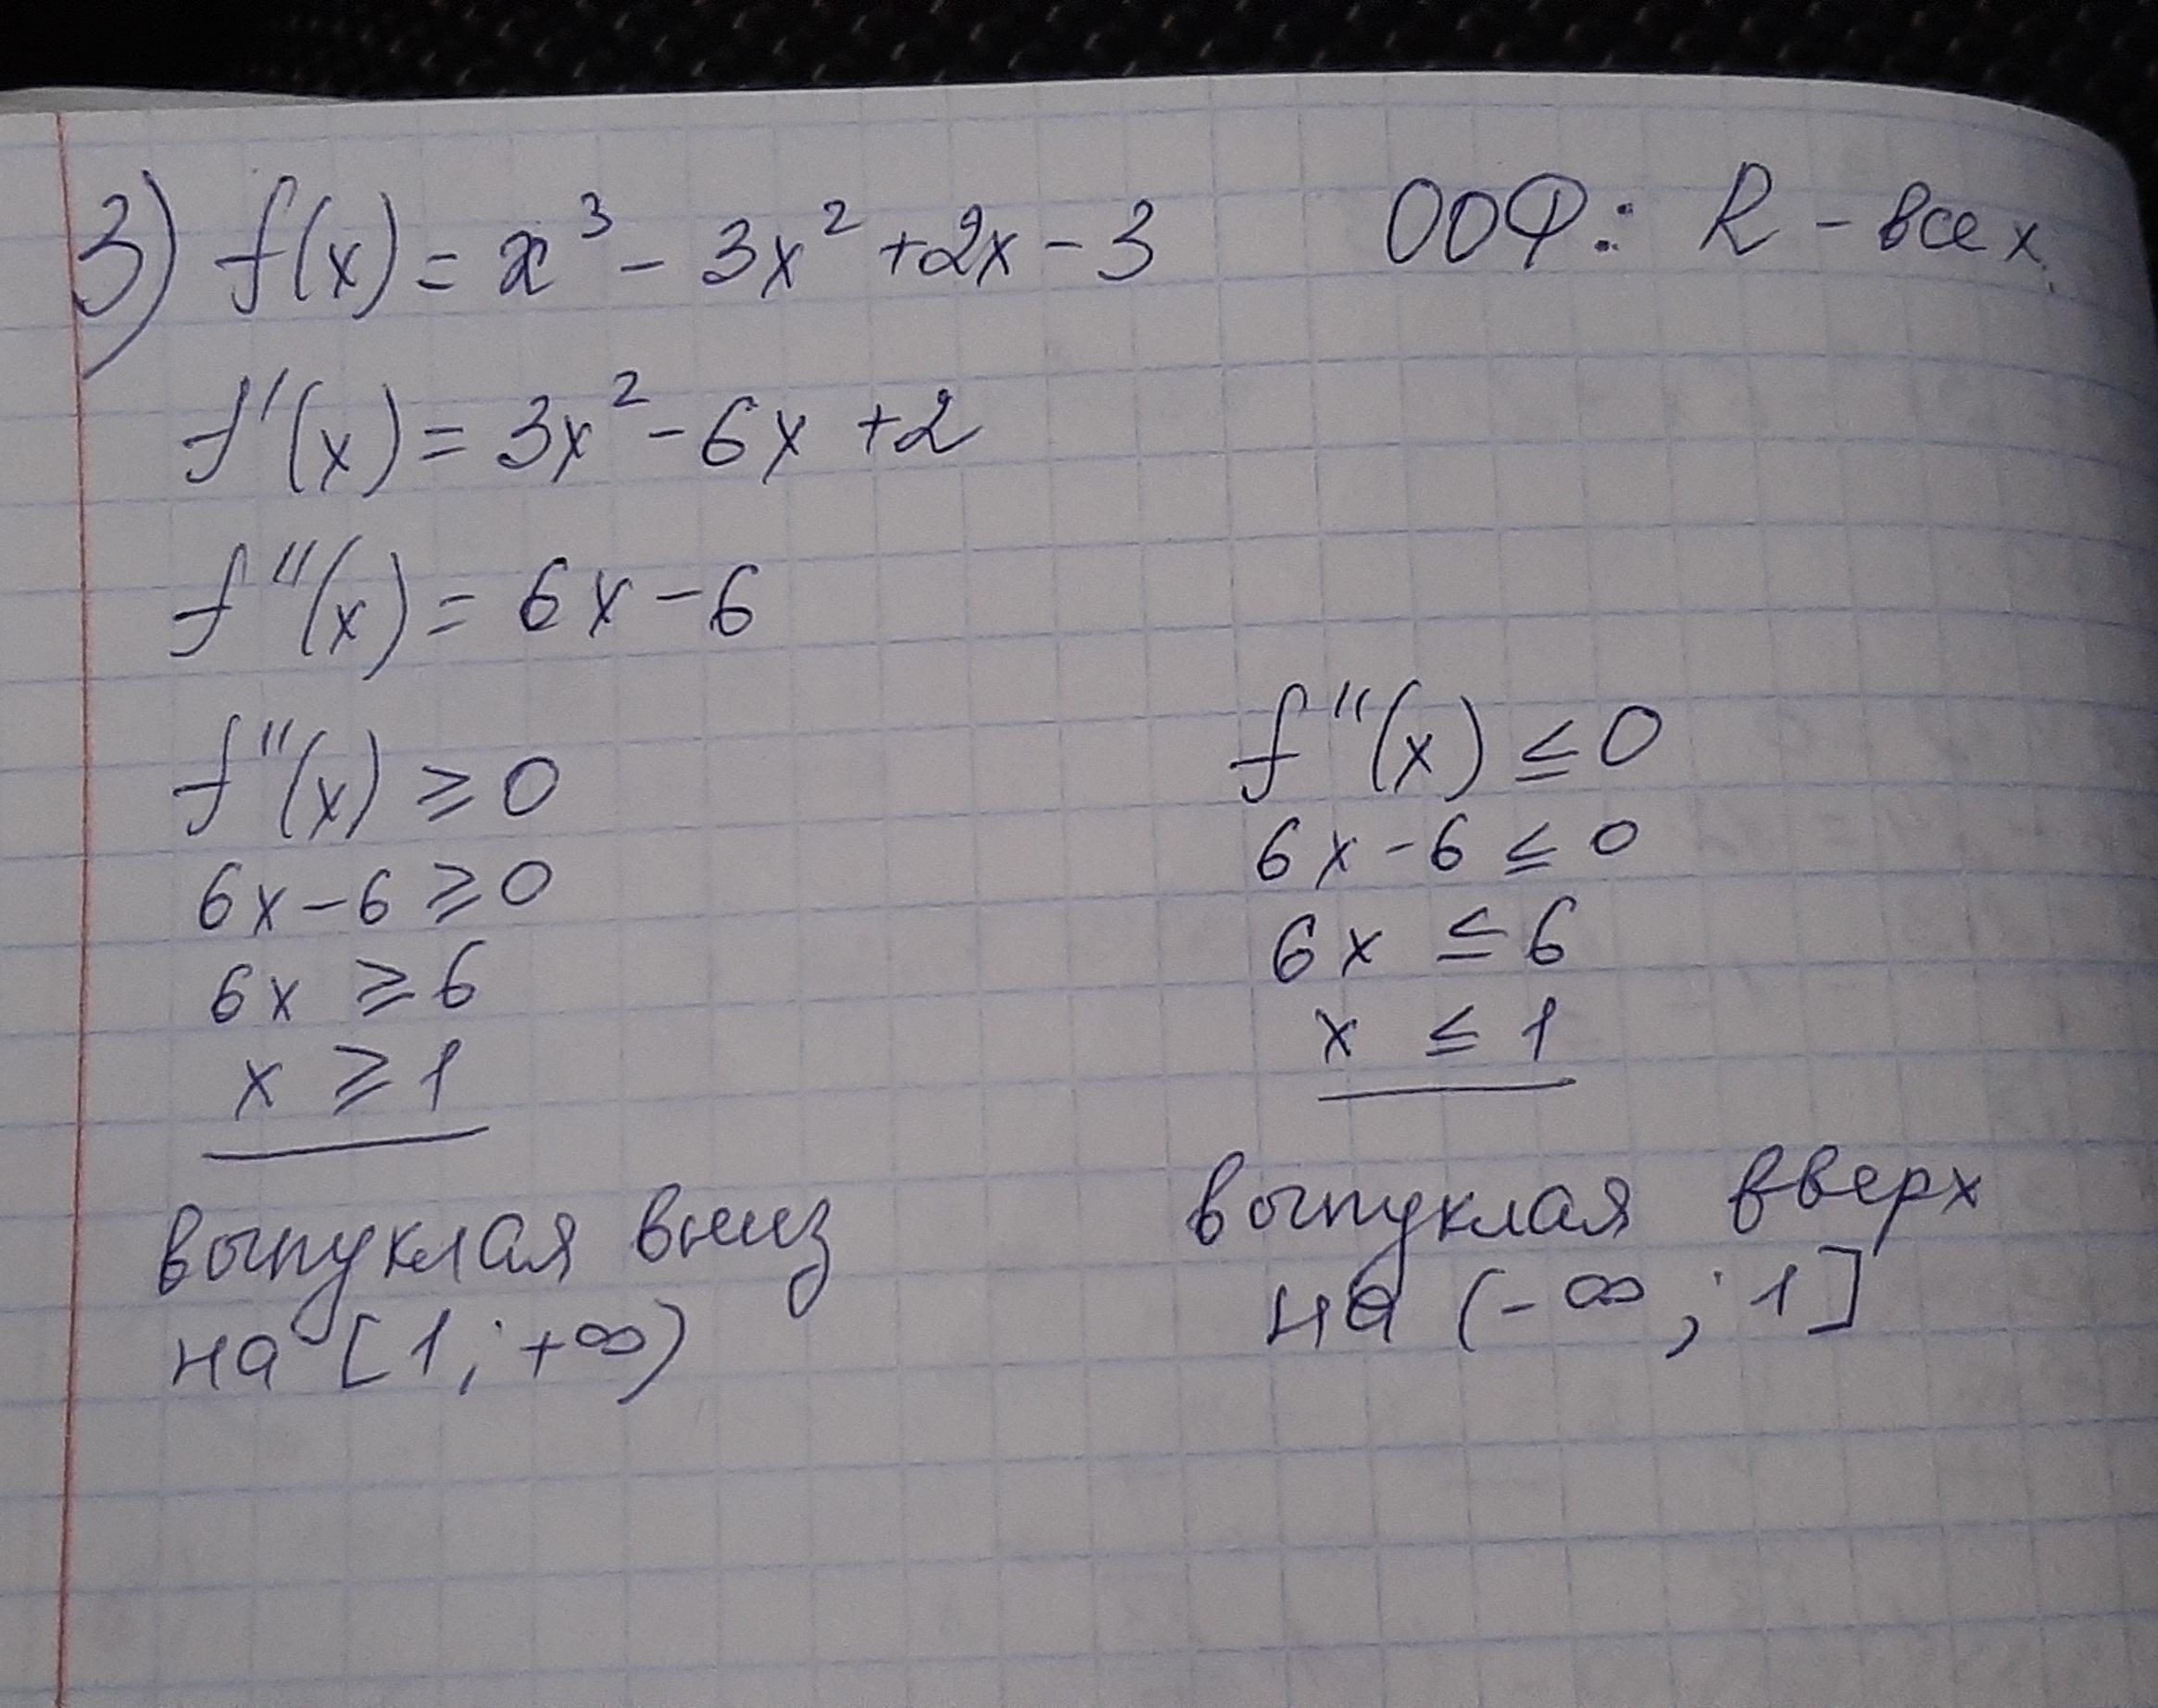 3) f(x) = x³ - 3x² + 2x - 3 ООФ: R - все x
f'(x) = 3x² - 6x + 2
f''(x) = 6x - 6
f''(x) ≥ 0
6x - 6 ≥ 0
6x ≥ 6
x ≥ 1
выпуклая вниз
на [1; +∞)
f''(x) ≤ 0
6x - 6 ≤ 0
6x ≤ 6
x ≤ 1
выпуклая вверх
на (-∞; 1]